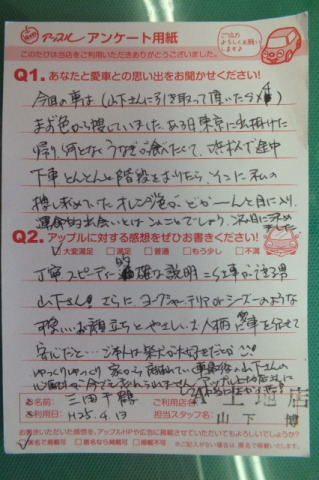 アップル アンケート用紙
ご協力
よろしくお願い
します♪
このたびは当店をご利用いただきありがとうございました。
Q1. あなたと愛車との思い出をお聞かせください!
今回の車は(山下さんに引き取って頂いたラメ)
まず色から捜していました。ある日東京に出掛けた
帰り何となくうなぎが食べたくて、浜松で途中
下車とんとんと階段をおりたら、そこに私の
捜し求めていたオレンジ色がどかーんと目に入り、
運命的出会いとはこのことでしょう、次の日に決め
ました
Q2. アップルに対する感想をぜひお書きください!
大変満足 □満足 □普通 □もう少し □不満
丁寧スピーディに的確な説明
山下さん! さらにヨークシャーテリアorシーズーのような
お顔立ちとやさしいお人柄 愛車を任せて
安心だと…
ゆっくりゆっくり 家から 山下さんの
お名前 三田千鶴 ご利用店名
ご利用日 H25.4.13 担当スタッフ名 山下 博
お書きいただいた感想を、アップルHPや広告に掲載させていただいてもよろしいでしょうか?
実名で掲載可 □匿名なら掲載可 □掲載不可 ※ご記入がない場合は、匿名で掲載します。